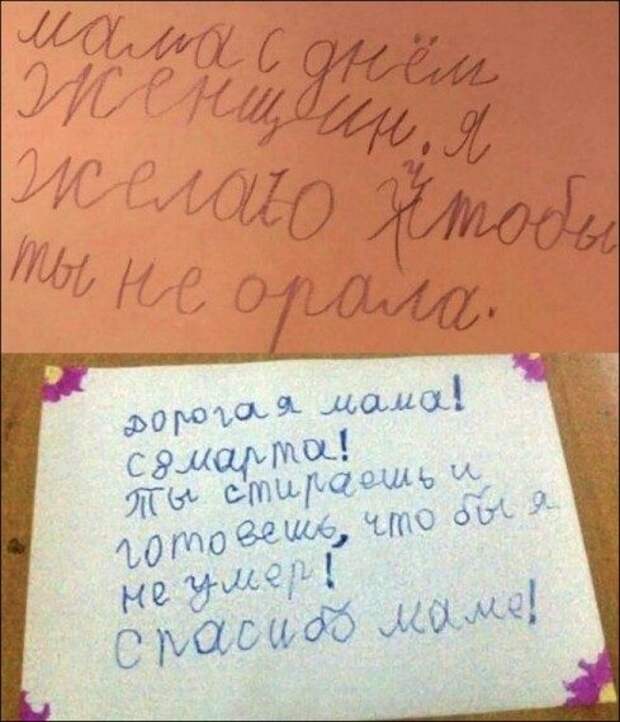 мама с днём
женщин. я
желаю чтобы
ты не орала.
дорогая мама!
с 8 марта!
Ты стираешь и
готовешь, что бы я
не умер!
спасибо маме!